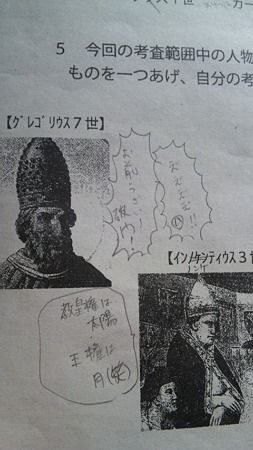 5 今回の考査範囲中の人物
ものを一つあげ、自分の考
【グレゴリウス7世】
お前うざい!
破門!
ええええ!!
【インノケンティウス3世
教皇権は
太陽
王権は
月(笑)